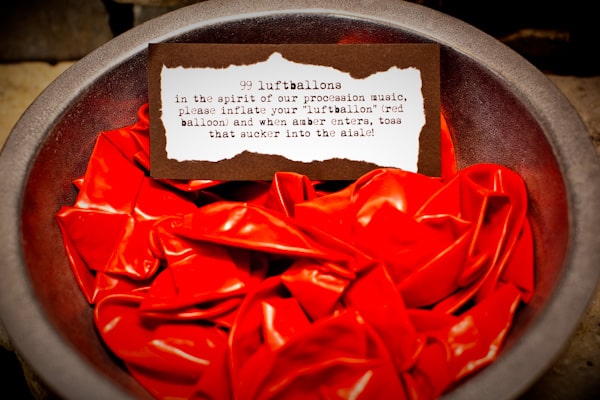 99 luftballons
in the spirit of our procession music,
please inflate your "luftballon" (red
balloon) and when amber enters, toss
that sucker into the aisle!